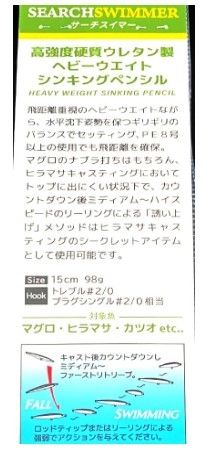 SEARCHSWIMMER
サーチスイマー
高強度硬質ウレタン製
ヘビーウエイト
シンキングペンシル
HEAVY WEIGHT SINKING PENCIL
飛距離重視のヘビーウエイトなが
ら、水平沈下姿勢を保つギリギリの
バランスでセッティング、PE8号
以上の使用でも飛距離を確保。
マグロのナブラ打ちはもちろん、
ヒラマサキャスティングにおいて
トップに出にくい状況下で、カウ
ントダウン後ミディアム〜ハイス
ピードのリーリングによる「誘い上
げ」メソッドはヒラマサキャス
ティングのシークレットアイテム
として使用可能です。
Size 15cm 98g
Hook トレブル#2/0
プラグシングル#2/0 相当
対象魚
マグロ・ヒラマサ・カツオ etc..
キャスト後カウントダウンし
ミディアム〜
ファーストリトリーブ。
FALL
SWIMMING
ロッドティップまたはリーリングによる
強弱でアクションを与えてください。